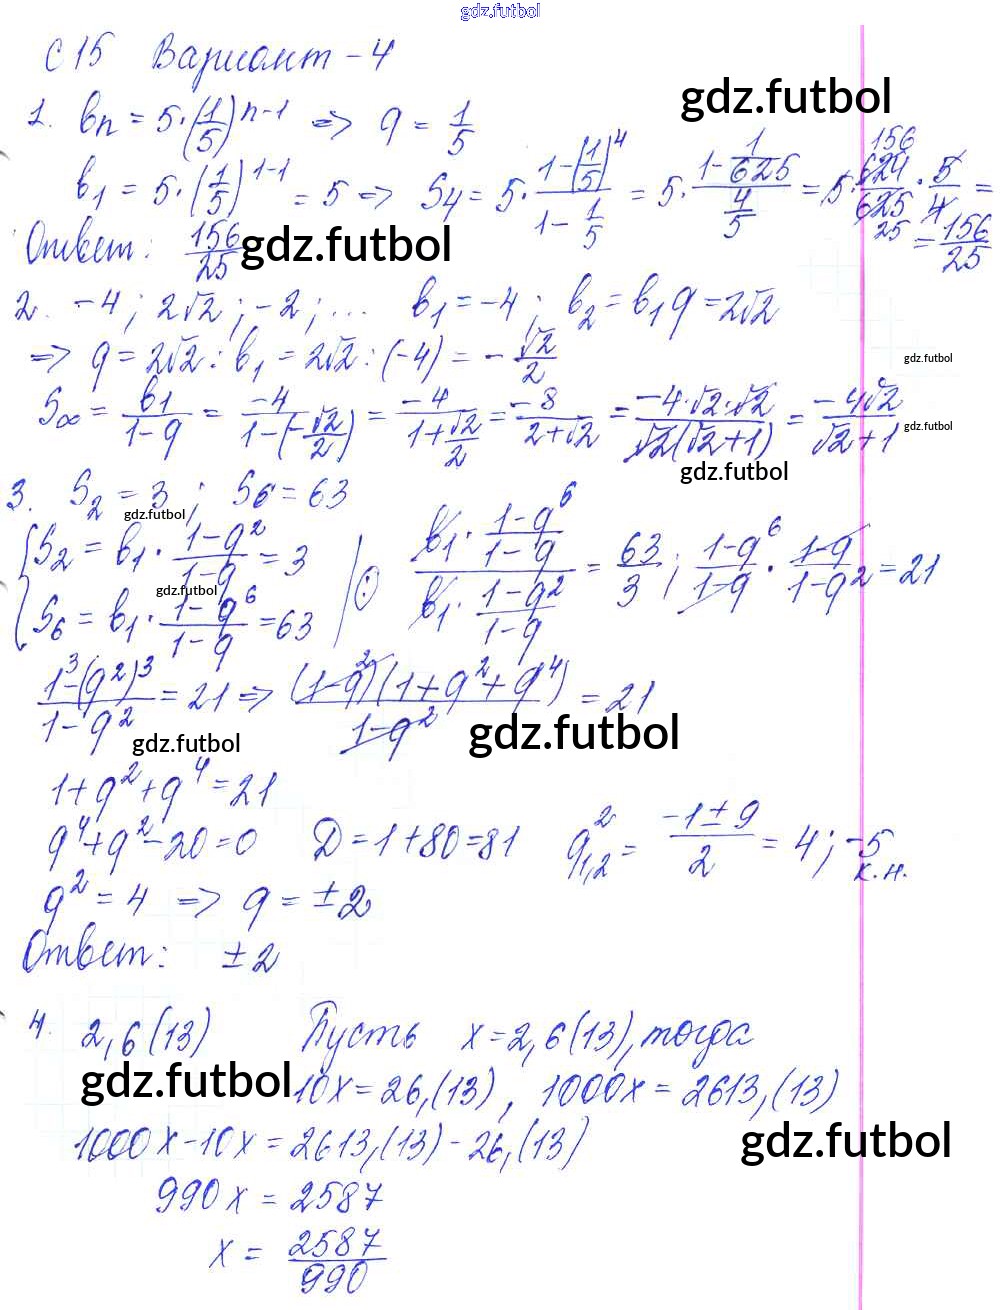 gdz.futbol
С 15 Вариант - 4
gdz.futbol
1. bn = 5·(1/5)^(n-1) => q = 1/5
b₁ = 5·(1/5)^(1-1) = 5 => S4 = 5·(1-(1/5)^4)/(1-1/5) = 5·(1-1/625)/(4/5) = 5·624/625·5/4 = 156 25 = 156/25
Ответ: 156/25
gdz.futbol
2. -4; 2√2; -2; ... b₁ = -4; b₂ = b₁q = 2√2
=> q = 2√2 : b₁ = 2√2 : (-4) = -√2/2
gdz.futbol
S∞ = b₁/(1-q) = -4/(1-(-√2/2)) = -4/(1+√2/2) = -8/(2+√2) = -4·√2·√2/(√2(√2+1)) = -4√2/(√2+1)
gdz.futbol
gdz.futbol
3. S₂ = 3; S6 = 63
gdz.futbol
{S₂ = b₁·(1-q²)/(1-q) = 3 | : (b₁·(1-q⁶)/(1-q))/(b₁·(1-q²)/(1-q)) = 63/3; (1-q⁶)/(1-q)·(1-q)/(1-q²) = 21
gdz.futbol
S₆ = b₁·(1-q⁶)/(1-q) = 63
(1³-(q²)³)/(1-q²) = 21 => (1-q²)(1+q²+q⁴)/(1-q²) = 21
gdz.futbol
gdz.futbol
1+q²+q⁴ = 21
q⁴+q²-20=0 D = 1+80=81 q²₁,₂ = (-1±9)/2 = 4; -5
к.н.
q² = 4 => q = ±2
Ответ: ±2
4. 2,6(13) Пусть x = 2,6(13), тогда
gdz.futbol
10x = 26,(13), 1000x = 2613,(13)
gdz.futbol
1000x - 10x = 2613,(13) - 26,(13)
990x = 2587
x = 2587/990